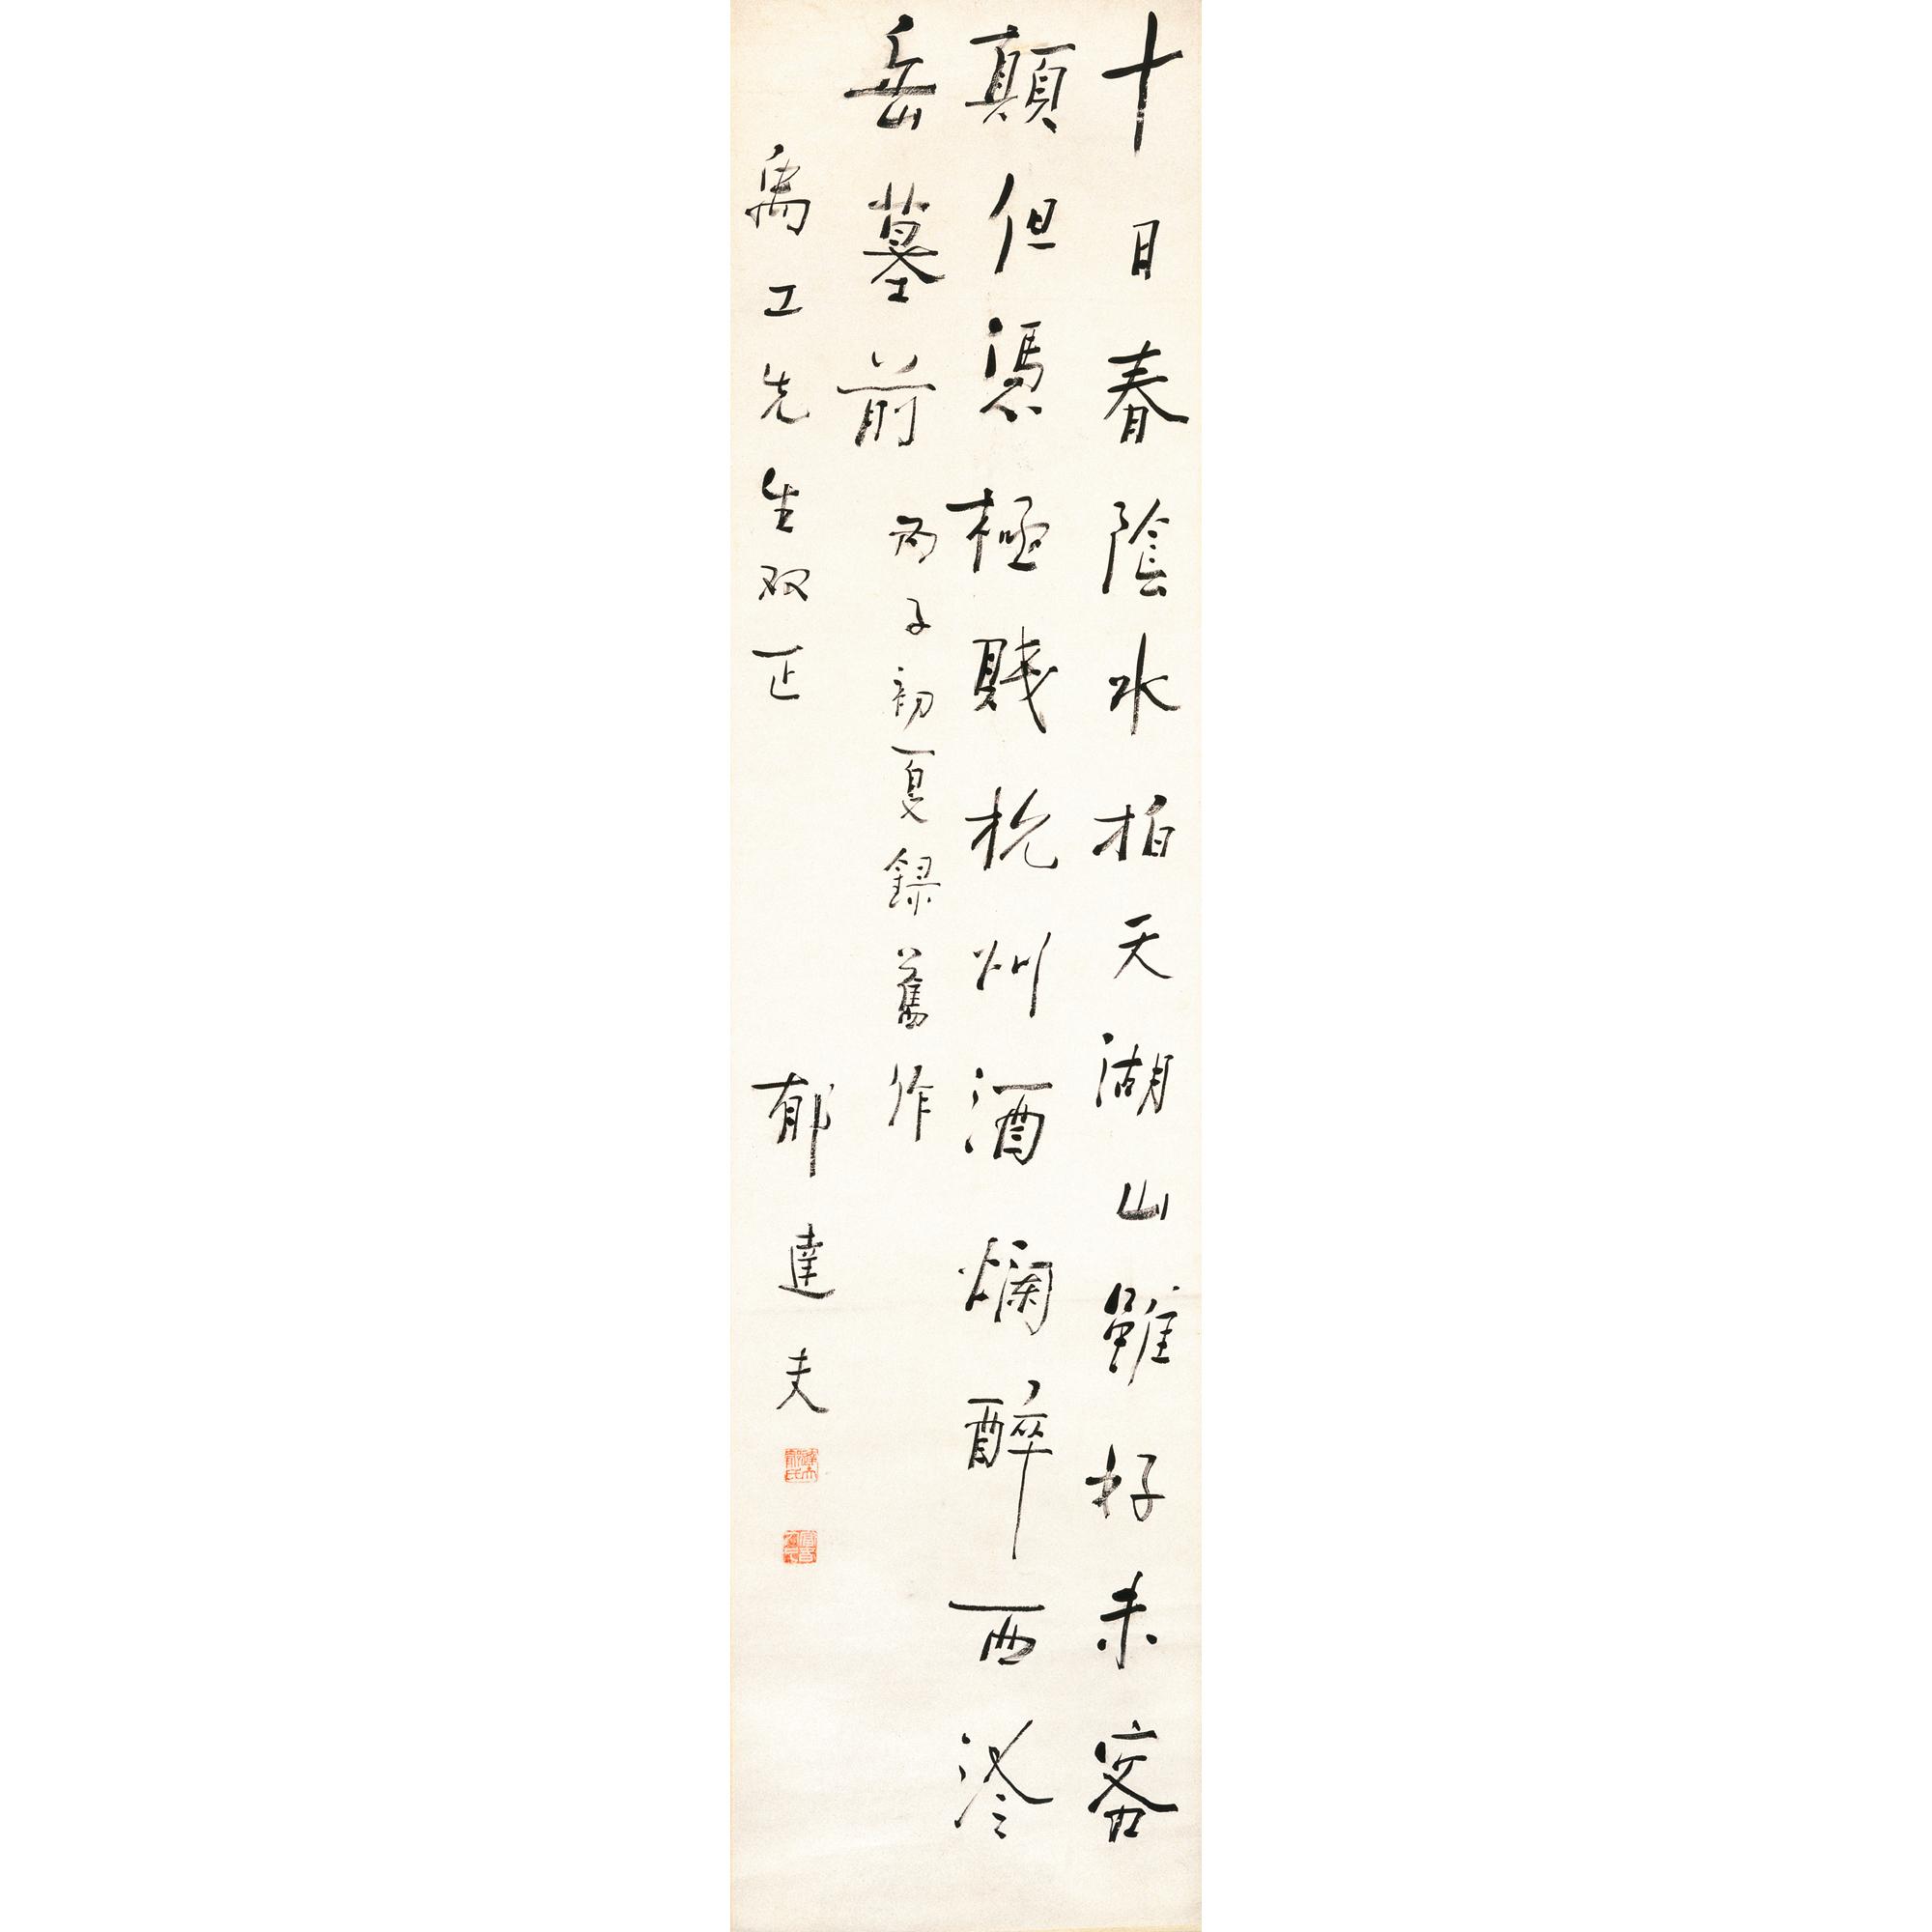 十日春陰水拍天湖山雖好未容
顛但憑極賤杭州酒爛醉西泠
岳墓前 丙子初夏錄舊作
工先生双正 郁達夫